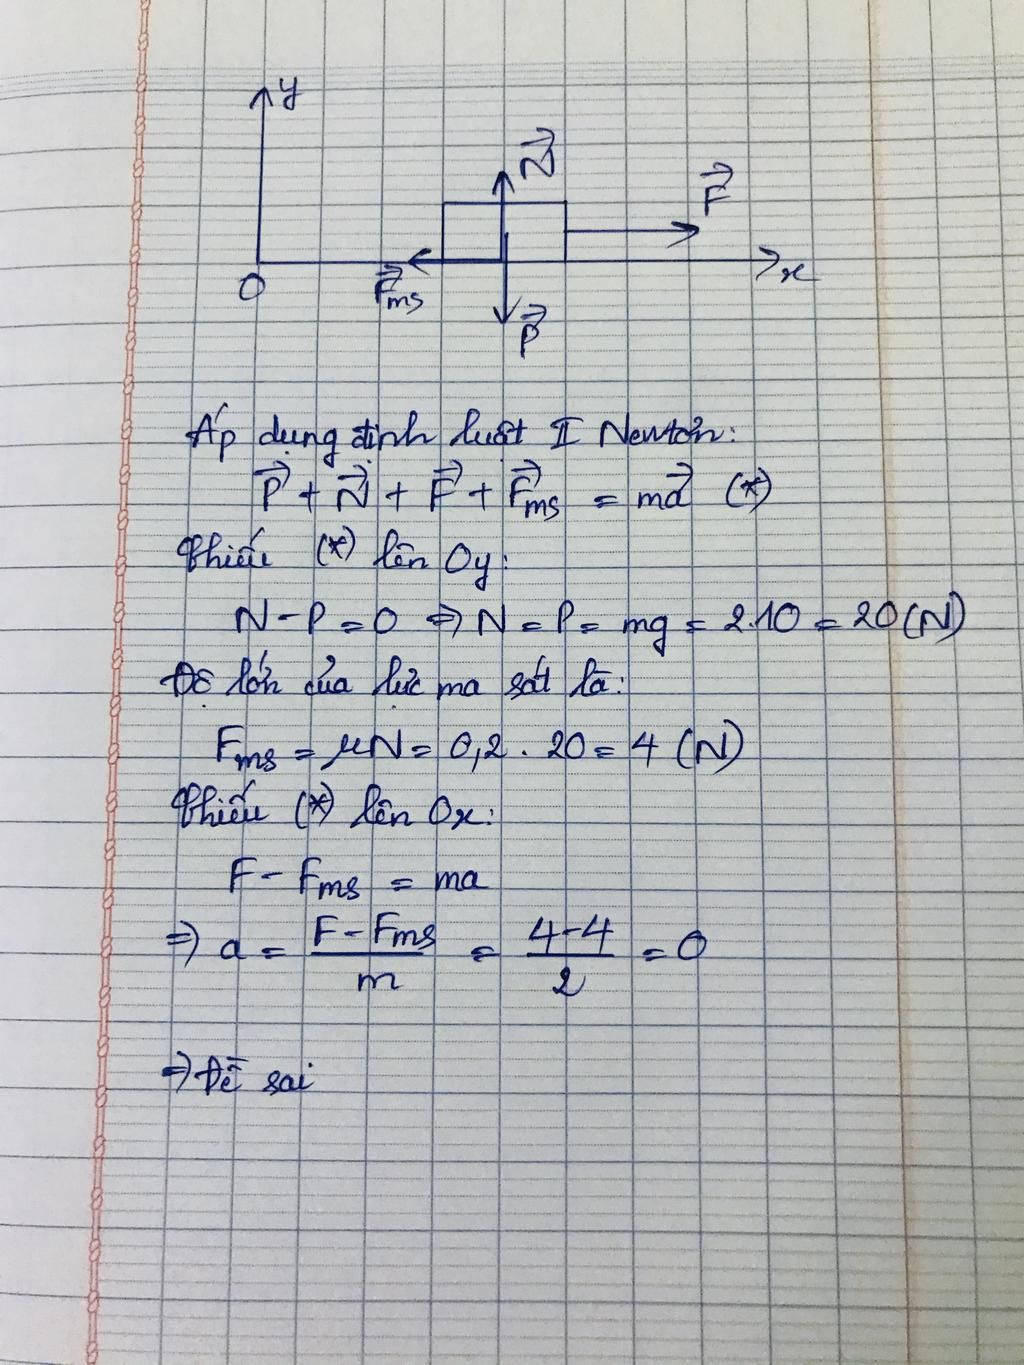 y
N⃗
F⃗
O
F⃗ms
x
P⃗
Áp dụng định luật II Newton:
P⃗ + N⃗ + F⃗ + F⃗ms = ma⃗ (*)
Chiếu (*) lên Oy:
N - P = 0 => N = P = mg = 2.10 = 20 (N)
Độ lớn của lực ma sát là:
Fms = μN = 0,2 . 20 = 4 (N)
Chiếu (*) lên Ox:
F - Fms = ma
=> a = (F - Fms)/m = (4-4)/2 = 0
=> Đề sai